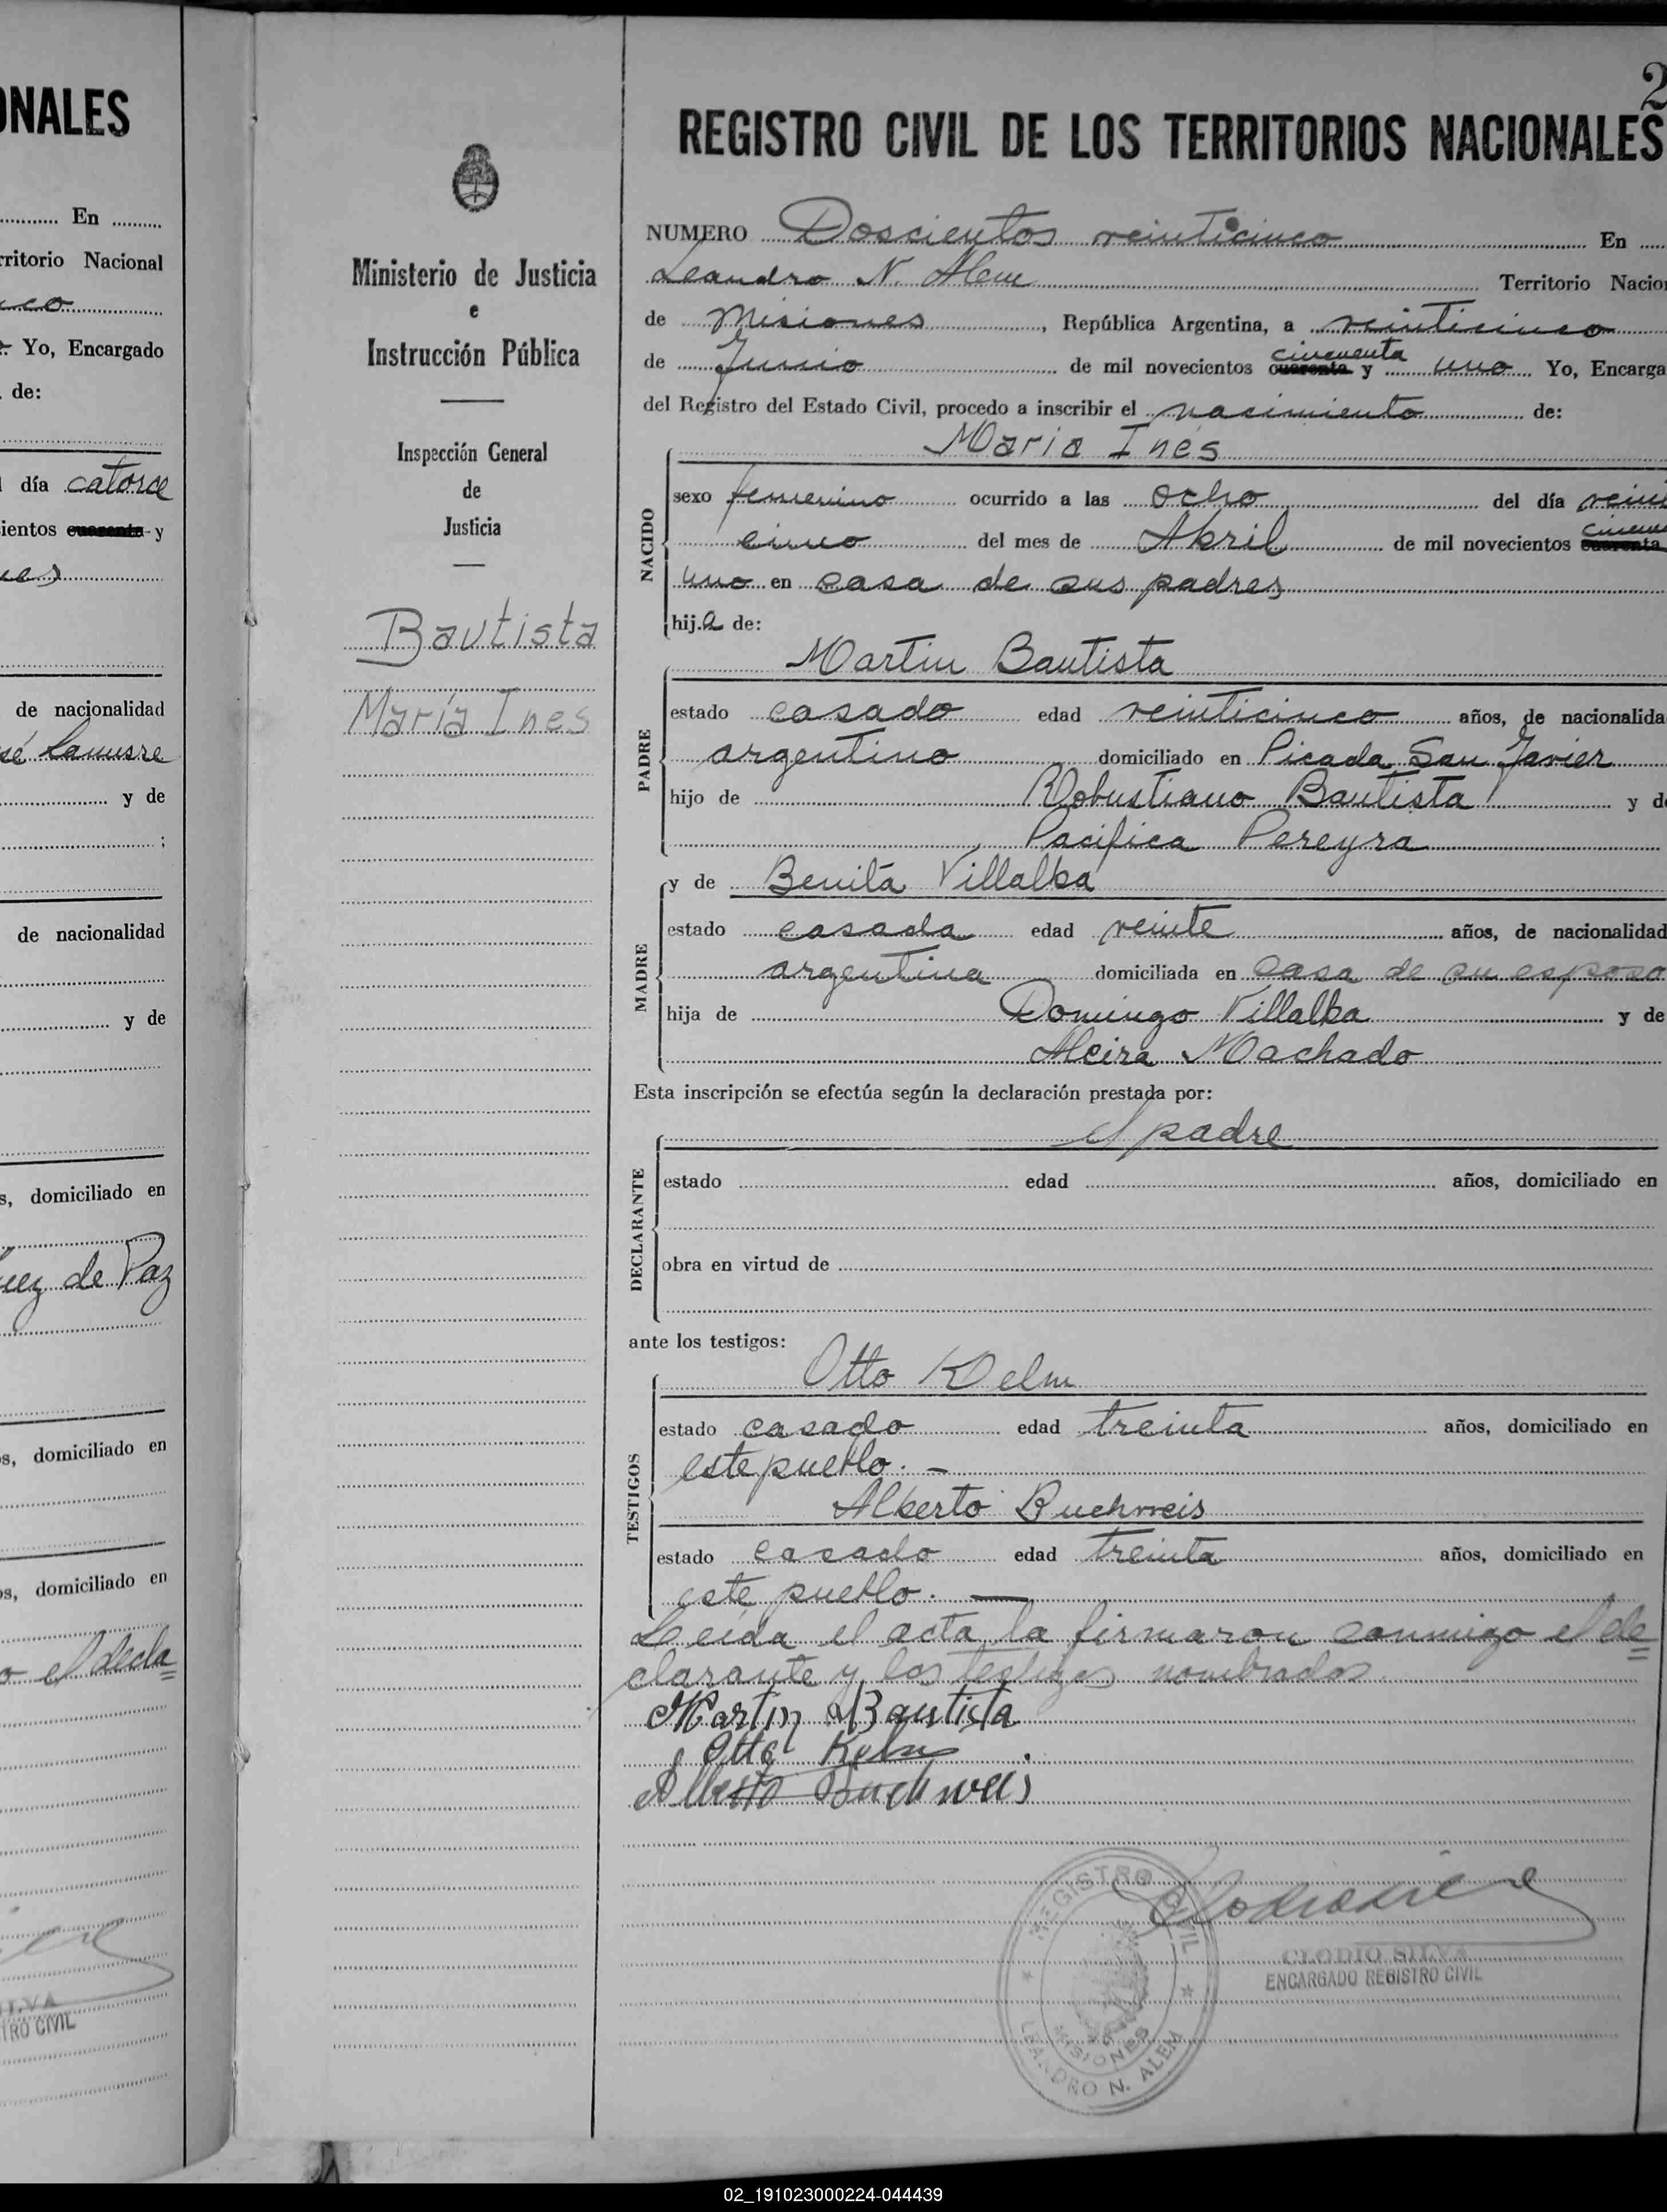 ONALES
En
rritorio Nacional
Yo, Encargado
de:
día catorce
ientos cuarenta y
de nacionalidad
sé Lanusse
y de
;
de nacionalidad
y de
s, domiciliado en
uez de Paz
s, domiciliado en
os, domiciliado en
o el decla
TRO CIVIL
Ministerio de Justicia
e
Instrucción Pública
Inspección General
de
Justicia
Bautista
María Ines
2
REGISTRO CIVIL DE LOS TERRITORIOS NACIONALES
NUMERO Doscientos veinticinco En
Leandro N. Alem Territorio Nacion
de Misiones, República Argentina, a veinticinco
de Junio de mil novecientos cuarenta cincuenta y uno Yo, Encarga
del Registro del Estado Civil, procedo a inscribir el nacimiento de:
Maria Inés
NACIDO
sexo femenino ocurrido a las ocho del día veinti
cinco del mes de Abril de mil novecientos cuarenta cincuen
uno en casa de sus padres
hija de:
Martin Bautista
PADRE
estado casado edad veinticinco años, de nacionalida
argentino domiciliado en Picada San Javier
hijo de Robustiano Bautista y de
Pacifica Pereyra
y de Benita Villalba
MADRE
estado casada edad veinte años, de nacionalidad
argentina domiciliada en casa de su esposo
hija de Domingo Villalba y de
Alcira Machado
Esta inscripción se efectúa según la declaración prestada por:
el padre
DECLARANTE
estado edad años, domiciliado en
obra en virtud de
ante los testigos:
Otto Kelm
TESTIGOS
estado casado edad treinta años, domiciliado en
este pueblo. —
Alberto Buchweis
estado casado edad treinta años, domiciliado en
este pueblo. —
Leida el acta la firmaron conmigo el de=
clarante y los testigos nombrados.
Martin Bautista
Otto Kelm
Alberto Buchweis
REGISTRO CIVIL
MISIONES
LEANDRO N. ALEM
CLODIO SILVA
ENCARGADO REGISTRO CIVIL
02_191023000224-044439